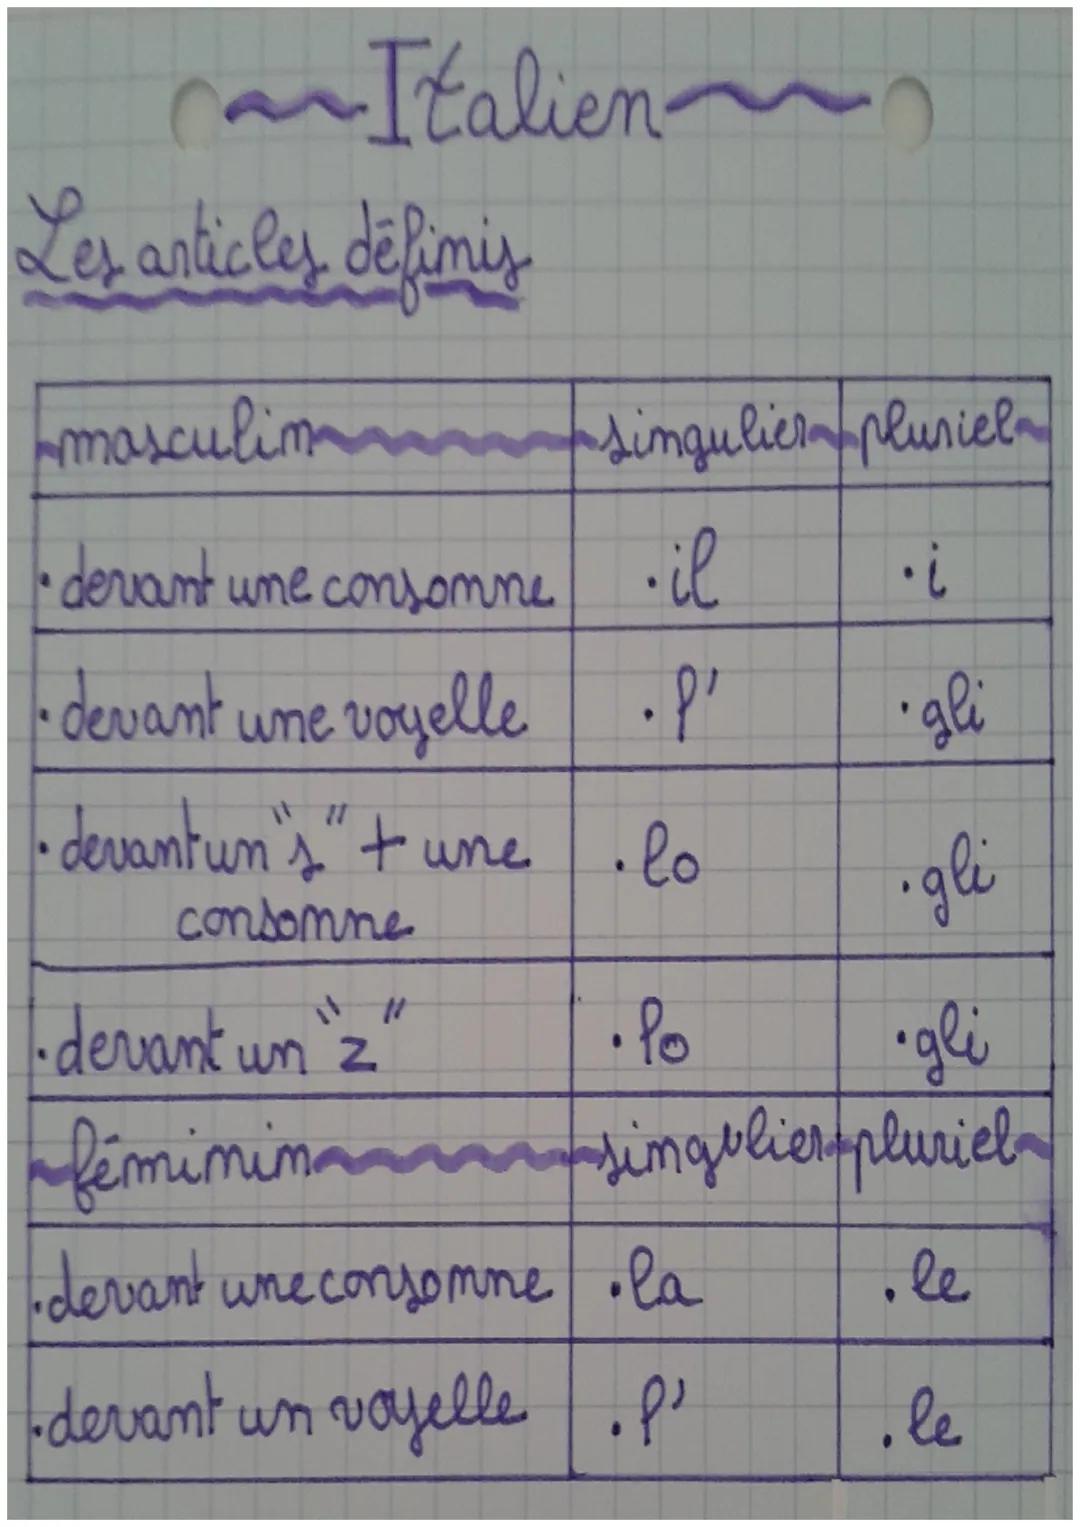 Italien
Les articles définis
masculin singulier pluriel
• devant une consonne • il • i
• devant une voyelle • l' • gli
• devant un "s" + une • lo • gli
consonne
• devant un "z" • lo • gli
féminin singulier pluriel
• devant une consonne • la • le
• devant un voyelle • l' • le